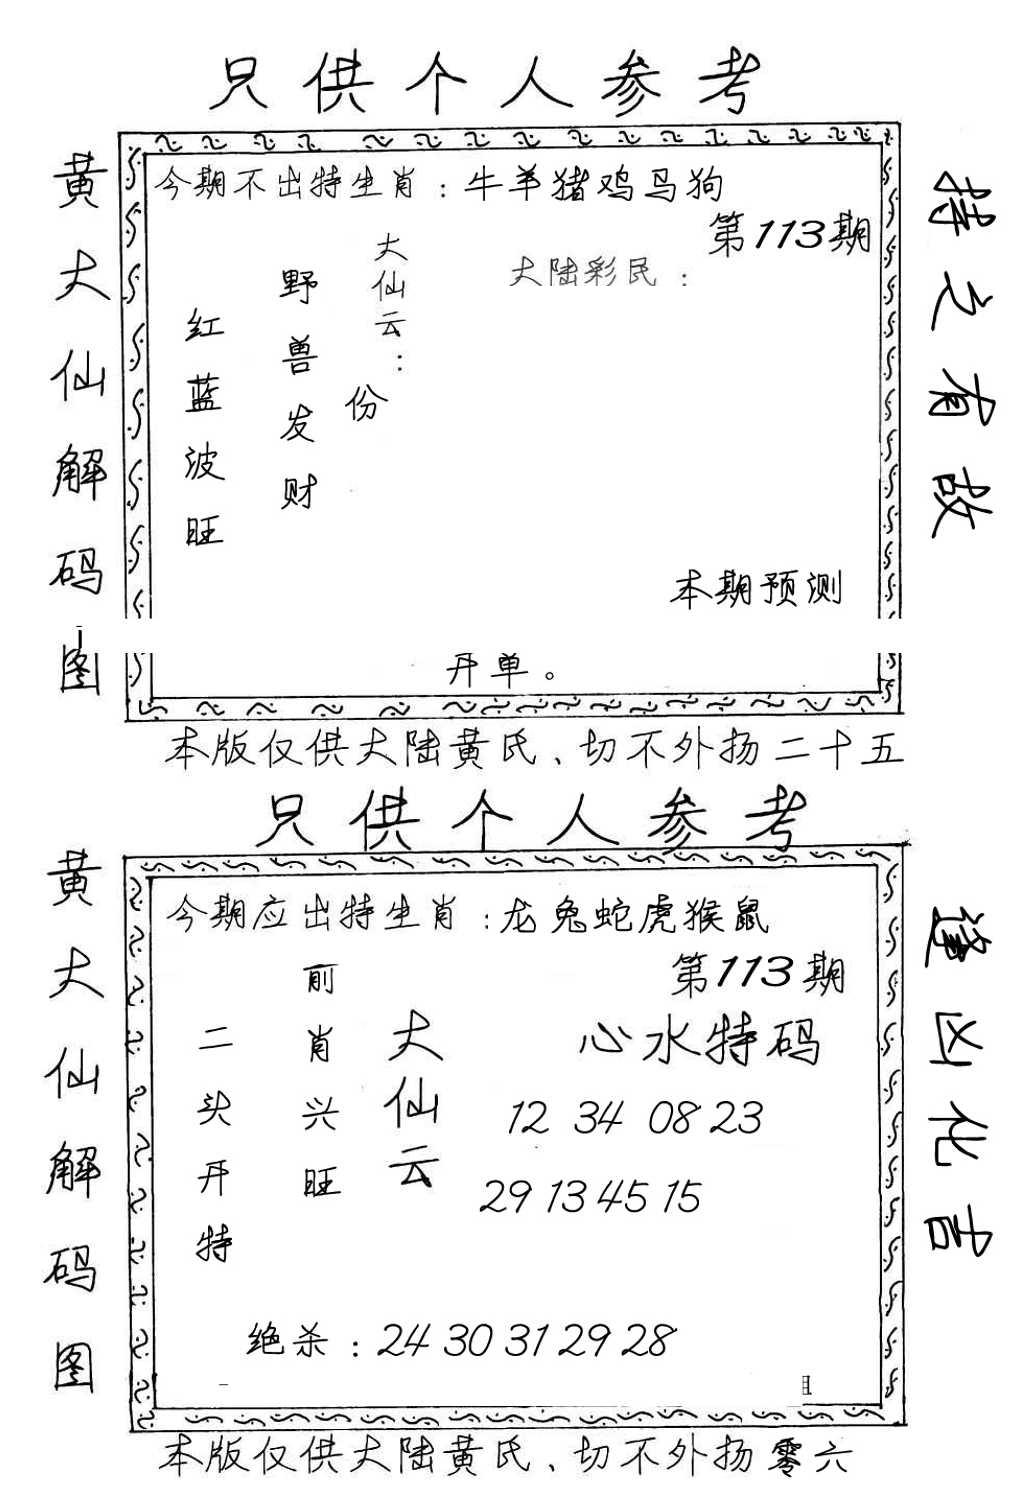 只供个人参考
黄大仙解码图
今期不出特生肖：牛羊猪鸡马狗
第113期
大陆彩民：
大仙云：
份
野兽发财
红蓝波旺
本期预测
开单。
持之有故
本版仅供大陆黄氏、切不外扬二十五
只供个人参考
黄大仙解码图
今期应出特生肖：龙兔蛇虎猴鼠
第113期
心水特码
12 34 08 23
29 13 45 15
大仙云
前肖兴旺
二头开特
绝杀：24 30 31 29 28
逢凶化吉
本版仅供大陆黄氏、切不外扬零六